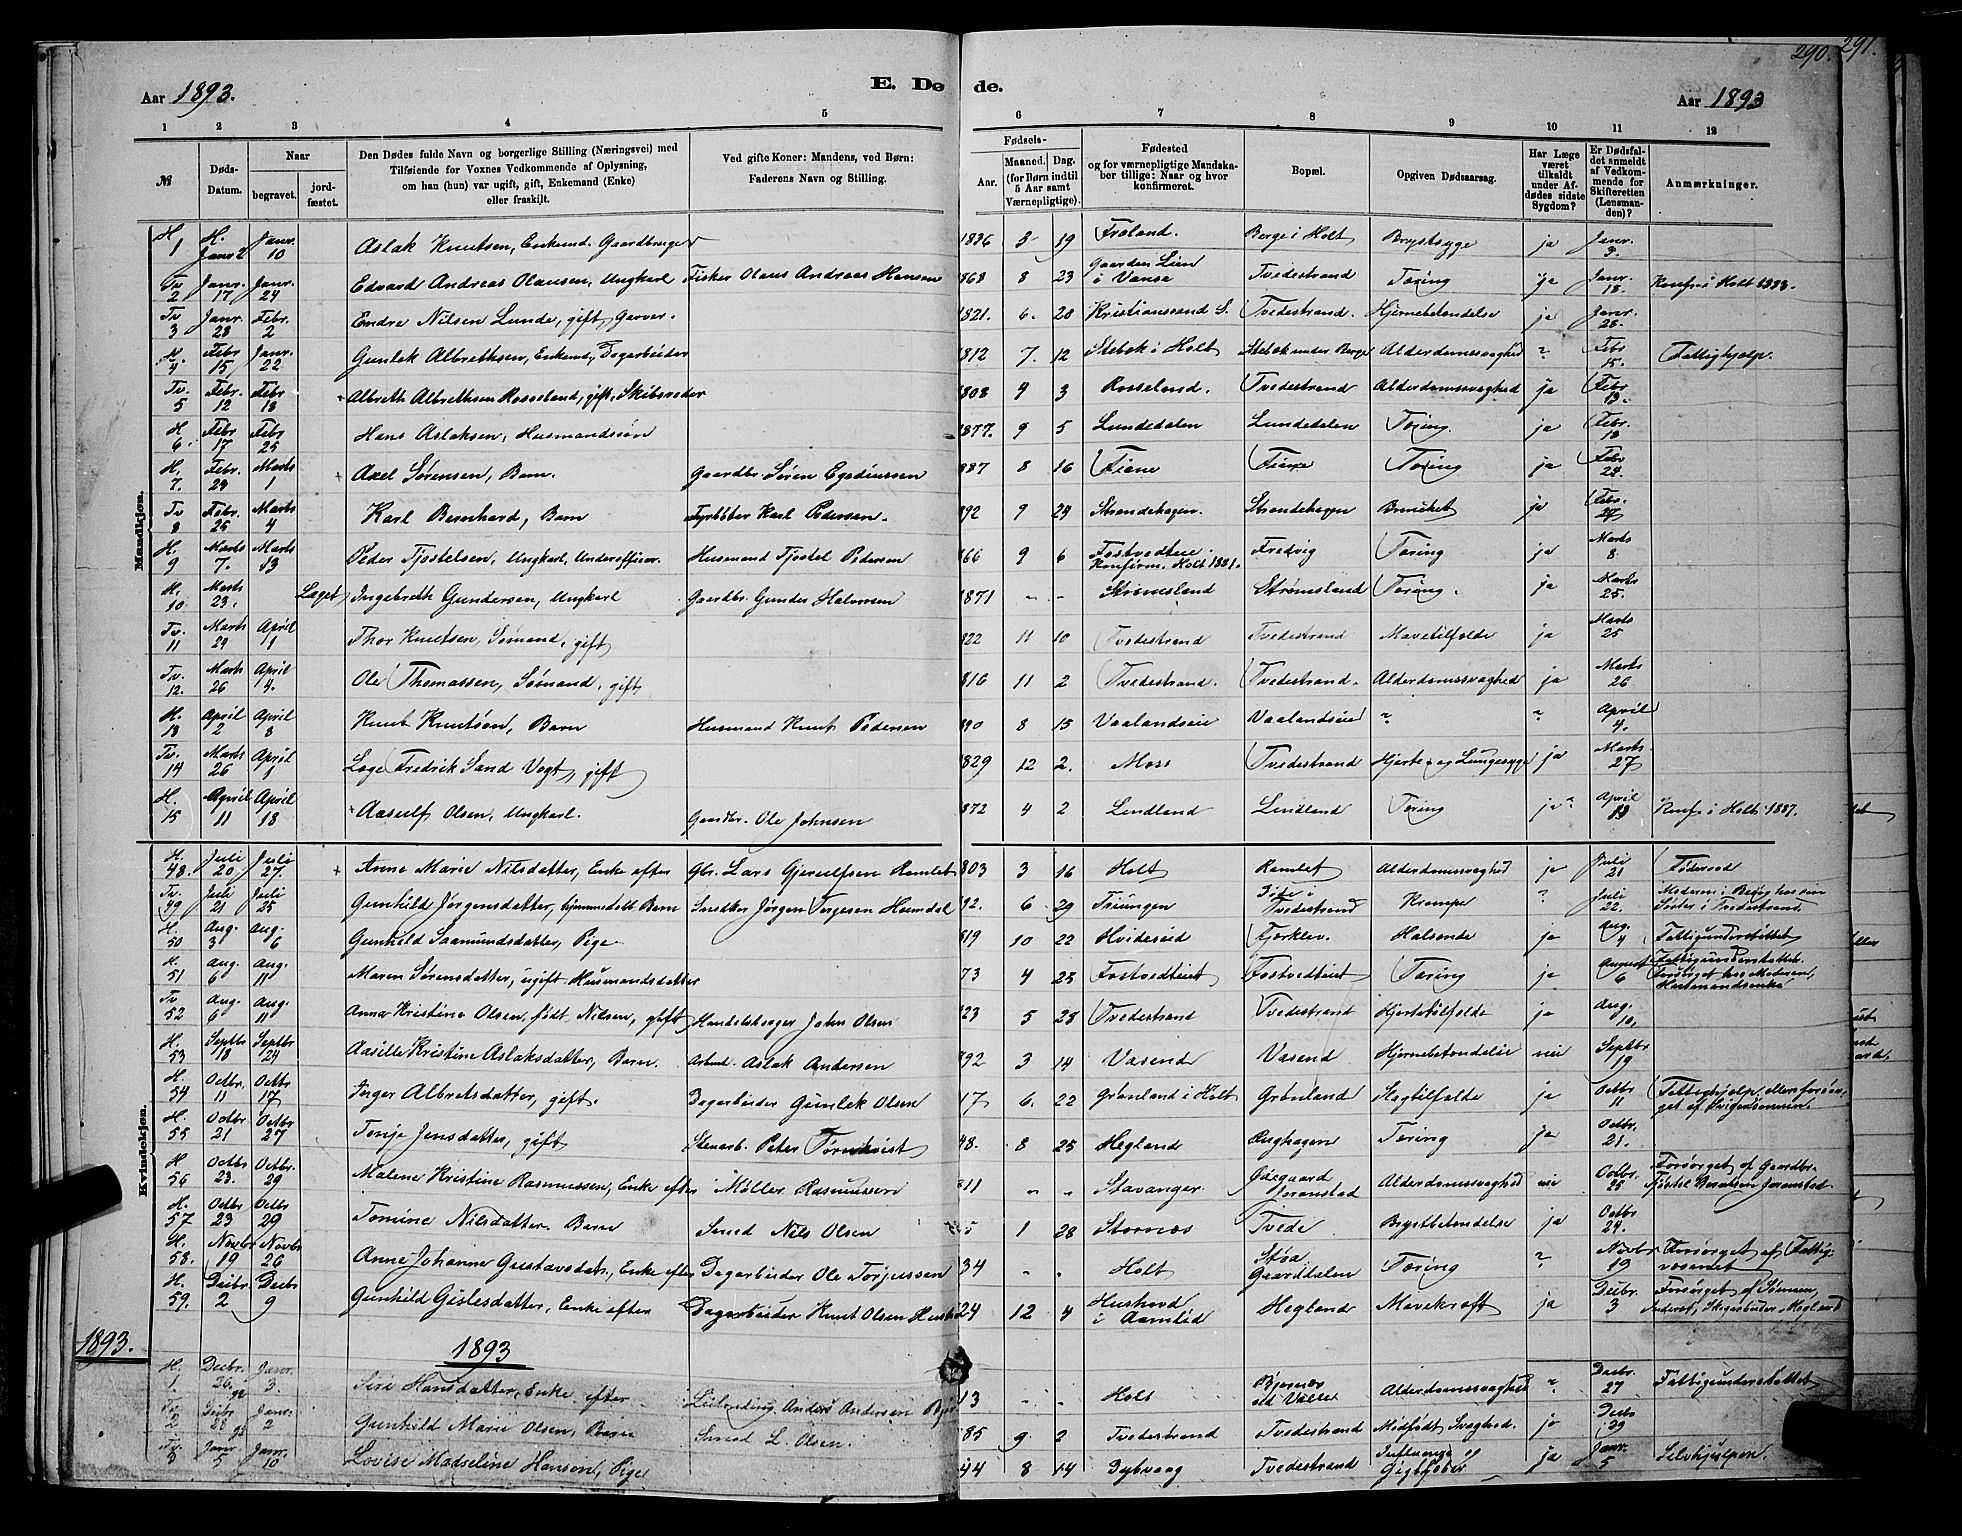 290. 291.
Aar 1893. E. Dø de. Aar 1893
1 2 3 4 5 6 7 8 9 10 11 12
№ Døds-Datum. Naar begravet. jordfæstet. Den Dødes fulde Navn og borgerlige Stilling (Næringsvei) med Tilføiende for Voxnes Vedkommende af Oplysning, om han (hun) var ugift, gift, Enkemand (Enke) eller fraskilt. Ved gifte Koner: Mandens, ved Børn: Faderens Navn og Stilling. Fødsels- Aar. Maaned. Dag. (for Børn indtil 5 Aar samt Værnepligtige). Fødested og for værnepligtige Mandskaber tillige: Naar og hvor konfirmeret. Bopæl. Opgiven Dødsaarsag. Har Læge været tilkaldt under Afdødes sidste Sygdom? Er Dødsfaldet anmeldt af Vedkommende for Skifteretten (Lensmanden)? Anmærkninger.
Mandkjøn.
H. 1 H. Janr 2 Janr. 10 Aslak Knutsen, Enkemd. Gaardbruger 1836 3 19 Froland. Berge i Holt Brystsyge ja Janr. 3.
Tv 2 Janr. 17 Janr. 24 Edvard Andreas Olausen, Ungkarl Fisker Olaus Andreas Hansen 868 8 23 Gaarden Lien i Vanse Tvedestrand Tæring ja Janr. 18. Konfr. i Holt 1883.
Tv 3 Janr. 23 Febr. 2 Endre Nilsen Lunde, gift, Garver. 1821. 6. 20 Kristianssand S. Tvedestrand. Hjernebetændelse ja Janr. 25.
H. 4 Febr 15 Janr. 22 Gunlek Albrethsen, Enkemd, Dagarbeider 1812 7. 12 Stebok i Holt Stebok under Berge Alderdomssvaghed " Febr 15. Fattighjælp.
Tv. 5 Febr. 12 Febr 18 Albreth Albrethsen Rosseland, gift, Skibsreder 1808 4 3 Rosseland. Tvedestrand Alderdomssvaghed ja Febr 13.
H 6. Febr 17 Febr 25 Hans Aslaksen, Husmandssøn 1877. 9 5 Lundedalen Lundedalen Tæring. ja Febr. 18
H. 7. Febr. 23 Marts 1 Axel Sørensen, Barn. Gaardbr. Søren Egediussen 887 8 16 Fiane Fiane Tæring ja Febr 24.
Tv 8 Febr. 25 Marts 4 Karl Bernhard, Barn Fyrbøter Karl Pedersen. 892 9 24 Strandehagen. Strandehagen Brunket ja Febr. 27
H. 9 Marts 7. Marts 13 Peder Tjøstelsen, Ungkarl, Underofficier. Husmand Tjøstel Pedersen 866 9 6 Fostvedteie. Konfirm. Holt 1881. Fredvig Tæring ja Marts 8.
H. 10 Marts 23. Laget Ingebreth Gundersen, Ungkarl Gaardbr. Gunder Halvorsen 1871 - - Strømesland Strømsland Tæring. ja Marts 25.
Tv. 11 Marts 29 April 11 Thor Knutsen, Sømand, gift 822 11 10 Tvedestrand Tvedestrand Mavetilfælde ja Marts 25
Tv. 12. Marts 26 April 4. Ole Thomassen, Sømand, gift 816 11 2 Tvedestrand. Tvedestrand. Alderdomssvaghed ja Marts 26
H. 13 April 2 April 8 Knut Knutsøn, Barn Husmand Knut Pedersen 890 8 15 Vaalandseie Vaalandseie " " April 4.
Tv. 14 Marts 26 April 1 Læge Fredrik Sand Vogt, gift 829 12 2. Moss Tvedestrand Hjerte- og Lungesyge ja Marts 27
H. 15 April 11 April 18 Aasulf Olsen, Ungkarl. Gaardbr. Ole Johnsen 872 4 2 Lindland Lindland Tæring ja? April 13 Konfr. i Holt 1887.
Kvindekjøn.
H. 48. Juli 20 Juli 27. Anne Marie Nilsdatter, Enke efter Gbr. Lars Gjerulfsen Ramlet 803 3 16 Holt Ramlet Alderdomssvaghed ja Juli 21 Føderaad
Tv. 49 Juli 21 Juli 25 Gunhild Jørgensdatter, hjemmedøbt Barn Snedker Jørgen Torgesen Homdal 92. 6 29 Triungen i Tvedestrand Krampe " Juli 22. Moderen i Berghossen Søster i Tvedestrand.
H. 50 Aug. 3 Aug. 6 Gunhild Saamundsdatter, Pige 819 10 22 Hvideseid Fjærklev. Halsonde ja Aug. 4 Fattigunderstøttet
H. 51 Aug. 6 Aug. 11 Maren Sørensdatter, ugift Husmandsdatter 73 4 25 Fostvedteiet Fostvedteiet Tæring ja August 6 Fattigunderstøttet. Forsørget hos Moderen, Husmandsenke
Tv 52 Aug. 6 Aug. 11 Anna Kristine Olsen, født Nilsen, gift Handelsborger John Olsen 823 5 28 Tvedestrand Tvedestrand Hjertetilfælde ja Aug. 10.
H. 53 Septbr 18 Septbr 24 Aasille Kristine Aslaksdatter, Barn. Arbmd. Aslak Andersen 892 3 14 Vasend Vasend Hjernebetændelse nei Septbr 19
H. 54 Octbr. 11 Octbr 17 Inger Albretsdatter, gift. Dagarbeider Gunlek Olsen 17 6. 22 Grønland i Holt Grønland Slagtilfælde ja Octbr 11 Fattighjælp, eller forsørget af Svigersønnen.
H. 55 Octbr 21 Octbr 27 Tonje Jensdatter, gift Stenarb. Peter Tørnkvist 48. 8 25 Hegland Rughagen Tæring ja Octbr. 21.
H 56 Octbr 23. Octbr. 29 Malene Kristine Rasmussen, Enke efter Møller Rasmussen 811 " " Stavanger. Ødegaard Joranstad Alderdomssvaghed nei Octbr 25 Forsørget af Gaardbr. Tjøstel Berntsen Joranstad.
H. 57 Octbr 23 Octbr 29 Tomine Nilsdatter. Barn Smed Nils Olsen 5 1 28 Stornæs Tvede Brystbetændelse ja Octbr 24.
H. 58. Novbr 19 Novbr 26 Anne Johanne Gustavsdatr., Enke efter Dagarbeider Ole Torjussen 34 " " Holt Støa Gaarddalen Tæring " Novbr 19 Forsørget af Fattigvæsenet
H. 59. Decbr 2 Decbr 9 Gunhild Gislesdatter, Enke efter Dagarbeider Knut Olsen 24 12 4 Hushovd i Aamlid Hegland Mavekræft ja Decbr. 3 Forsørget af Sønnen, Anderst, Skogarbeider, Hegland
1893. 1893
H. 1. Decbr. 26. 92 Janr. 3. Siri Hansdatter, Enke efter Leilænding Anders Andersen 13 " " Holt Bjørnær Alderdomssvaghed " Decbr. 27 Fattigunderstøttet
Tv. 2 Decbr 28 92 Janr. 2 Gunhild Marie Olsen, Smed L. Olsen. 85 9 2 Tvedestrand Tvedestrand Medfødt Svaghed. ja Decbr 29
Tv. 3 Janr. 5 Janr. 10 Lovise Madseline Hansen, Pige 44 8 14 Dybvaag Tvedestrand Influenza og Gigtfeber ja Janr. 5 Selvhjulpen.